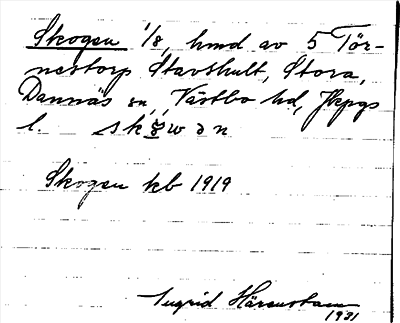 Skogen 1/8, hmd av 5 Tör-
nestorp Stavshult, Stora,
Dannäs sn, Västbo hd, Jkpgs
l. skɷwən
Skogen kb 1919
Ingrid Härenstam
1931